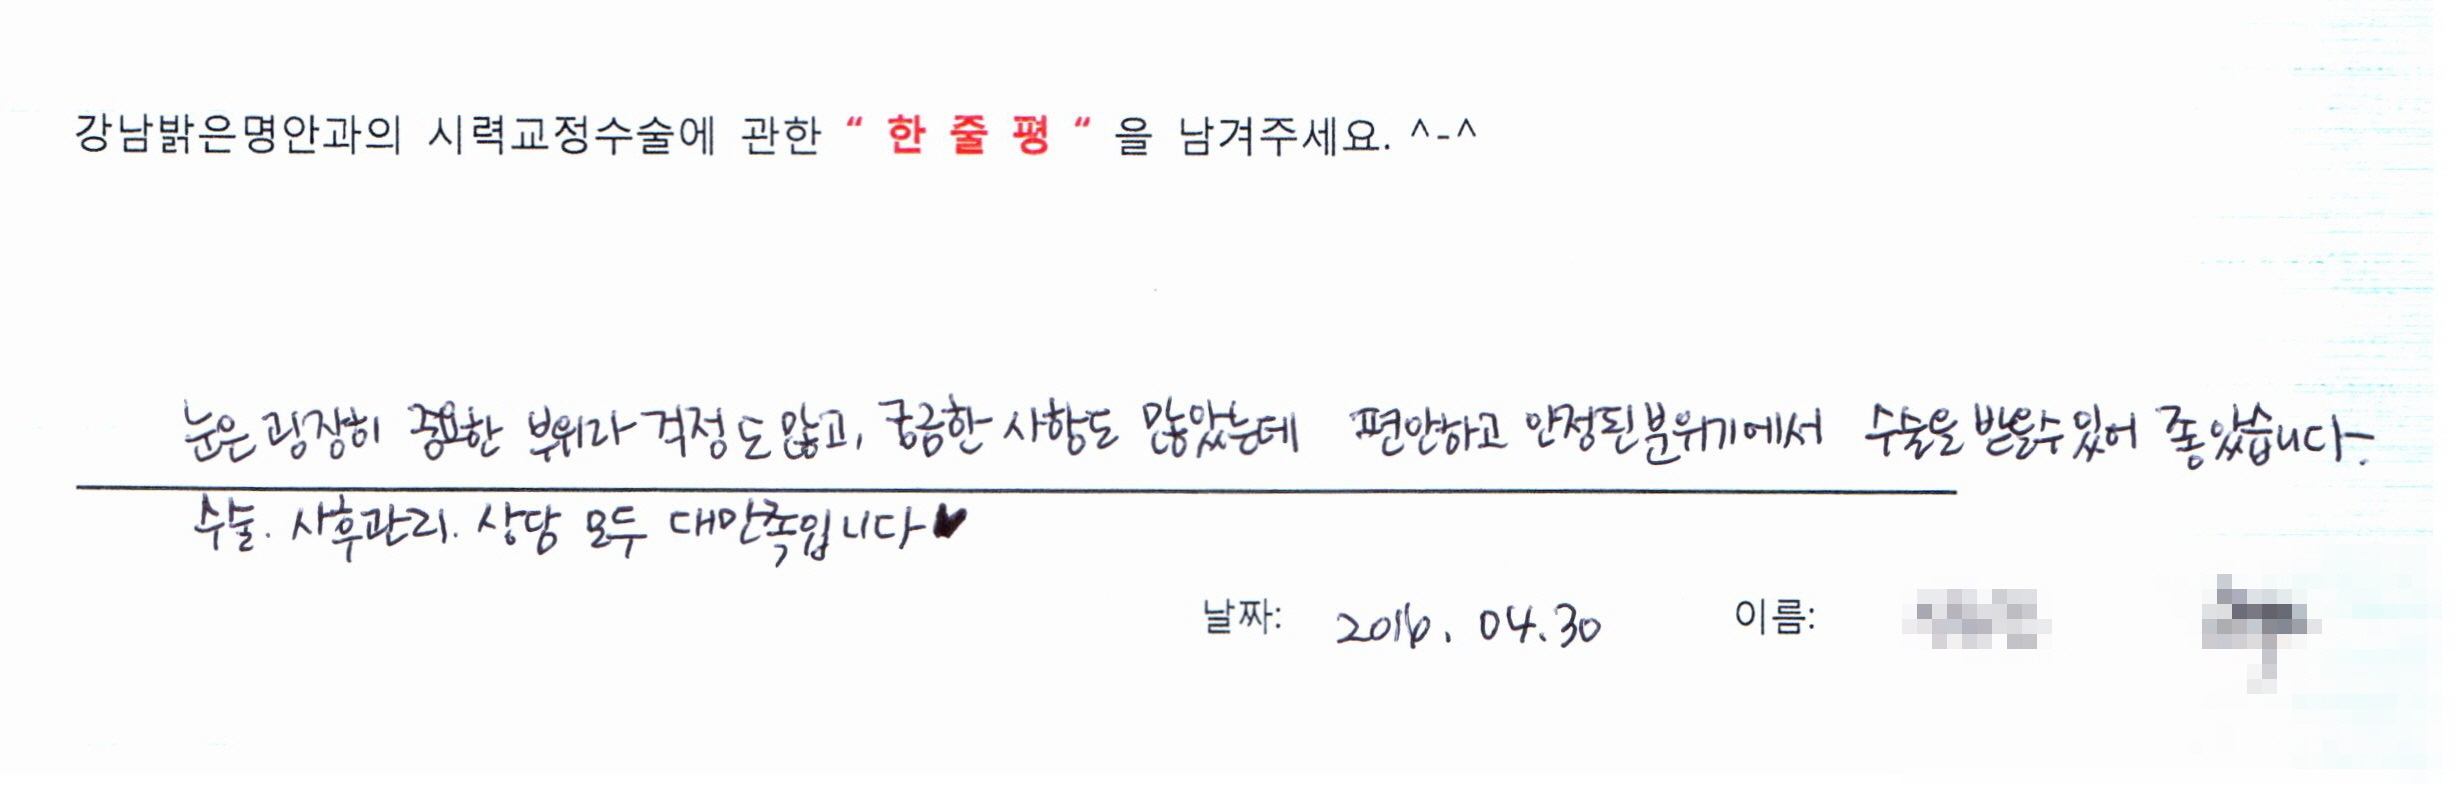 강남밝은명안과의 시력교정수술에 관한 “ 한 줄 평 “ 을 남겨주세요. ^-^
눈은 굉장히 중요한 부위라 걱정도 많고, 궁금한 사항도 많았는데 편안하고 안정된 분위기에서 수술을 받을수 있어 좋았습니다.
수술. 사후관리. 상담 모두 대만족입니다♥
날짜: 2016. 04.30 이름: